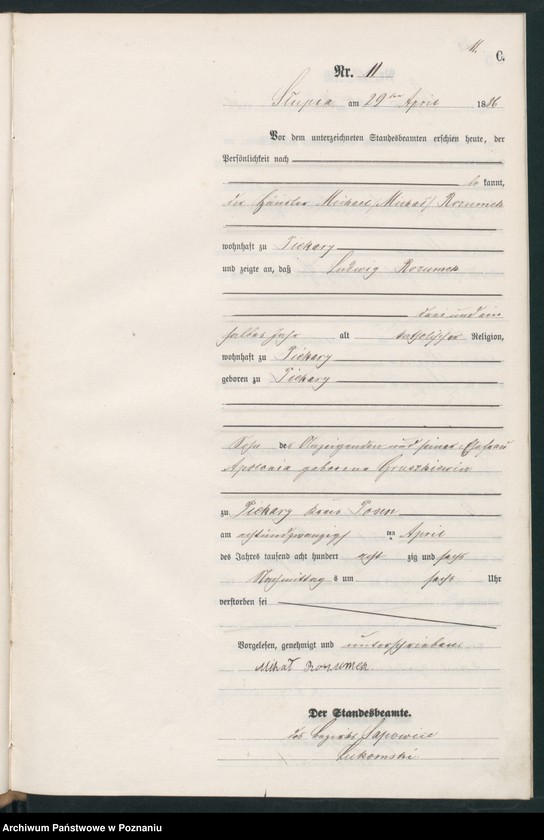 11.
C.
Nr. 11
Słupia am 29ten April 1886
Vor dem unterzeichneten Standesbeamten erschien heute, der
Persönlichkeit nach
be kannt,
der Häusler Michael /Michał/ Rozumek
wohnhaft zu Piekary
und zeigte an, daß Ludwig Rozumek
drei und ein
halbes Jahr alt katholischer Religion,
wohnhaft zu Piekary
geboren zu Piekary
Sohn des Anzeigenden und seiner Ehefrau
Apolonia geborene Gruszkiewicz
zu Piekary Kreis Posen
am achtundzwanzig ten April
des Jahres tausend acht hundert acht zig und sechs
Nachmittag s um sechs Uhr
verstorben sei
Vorgelesen, genehmigt und unterschrieben
Michał Rozumek
Der Standesbeamte.
des Bezirks Sapowice
Łukomski
Archiwum Państwowe w Poznaniu